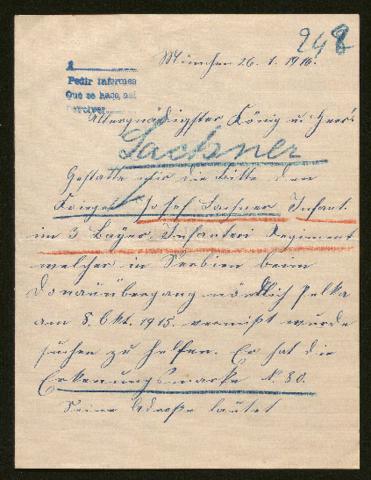 248
München 26.1.1916.
1
Pedir informes
Que se haga, así
Devolver
Allergnädigster König u. Herr!
Lachsner
Gestatte mir die Bitte den
Josef Lachsner Infant.
im 3 Bayer. Infanteri Regiment
welcher in Serbien beim
Donauübergang nördlich
am 8. Okt. 1915. vermißt wurde
suchen zu helfen. Er hat die
Erkenungsmarke N. 80.
Seine Adreße lautet